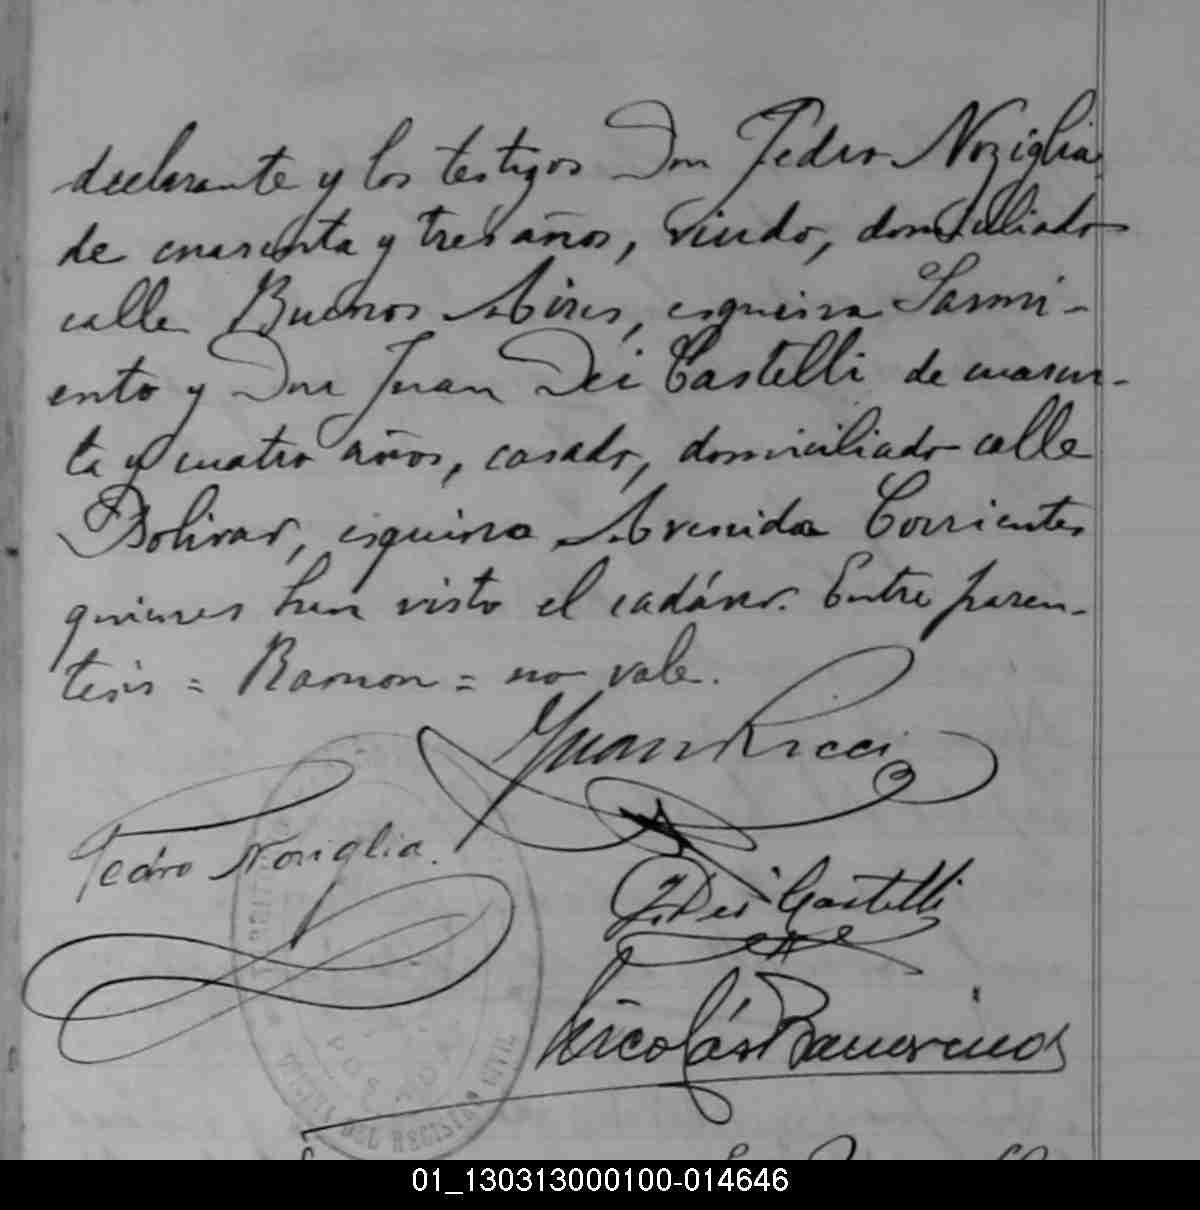 declarante y los testigos Don Pedro Noziglia
de cuarenta y tres años, viudo, domiciliado
calle Buenos Aires, esquina Sarmi-
ento y Don Juan Dei Castelli de cuaren-
ta y cuatro años, casado, domiciliado calle
Bolivar, esquina Avenida Corrientes
quienes han visto el cadáver. Entre paren-
tesis = Ramon = no vale.
Juan Ricci
Pedro Noziglia.
J. Dei Castelli
Nicolás
POSADAS
DEL REGISTRO CIVIL
01_130313000100-014646